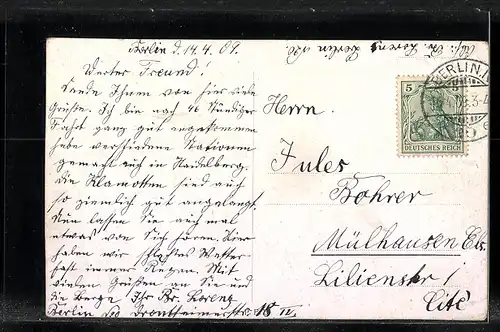 Berlin d. 14.4.09.
Werter Freund!
Sende Ihnen von hier viele
Grüße. Ich bin nach 46 stündiger
Fahrt ganz gut angekommen
habe verschiedene Stationen
gemacht auch in Heidelberg.
Die Klamotten sind auch
so ziemlich gut angelangt.
Nun lassen Sie auch mal
etwas von Sich hören. Hier
haben wir schlechtes Wetter
fast immer Regen. Mit
vielen Grüßen an Sie und
die Berge Ihr Fr. Lorenz
Berlin Drontheimerstr 18 IV
Abs. Fr. Lorenz Berlin
BERLIN
5
DEUTSCHES REICH
Herrn
Jules
Bohrer
Mülhausen Els.
Lilienstr.
Cité